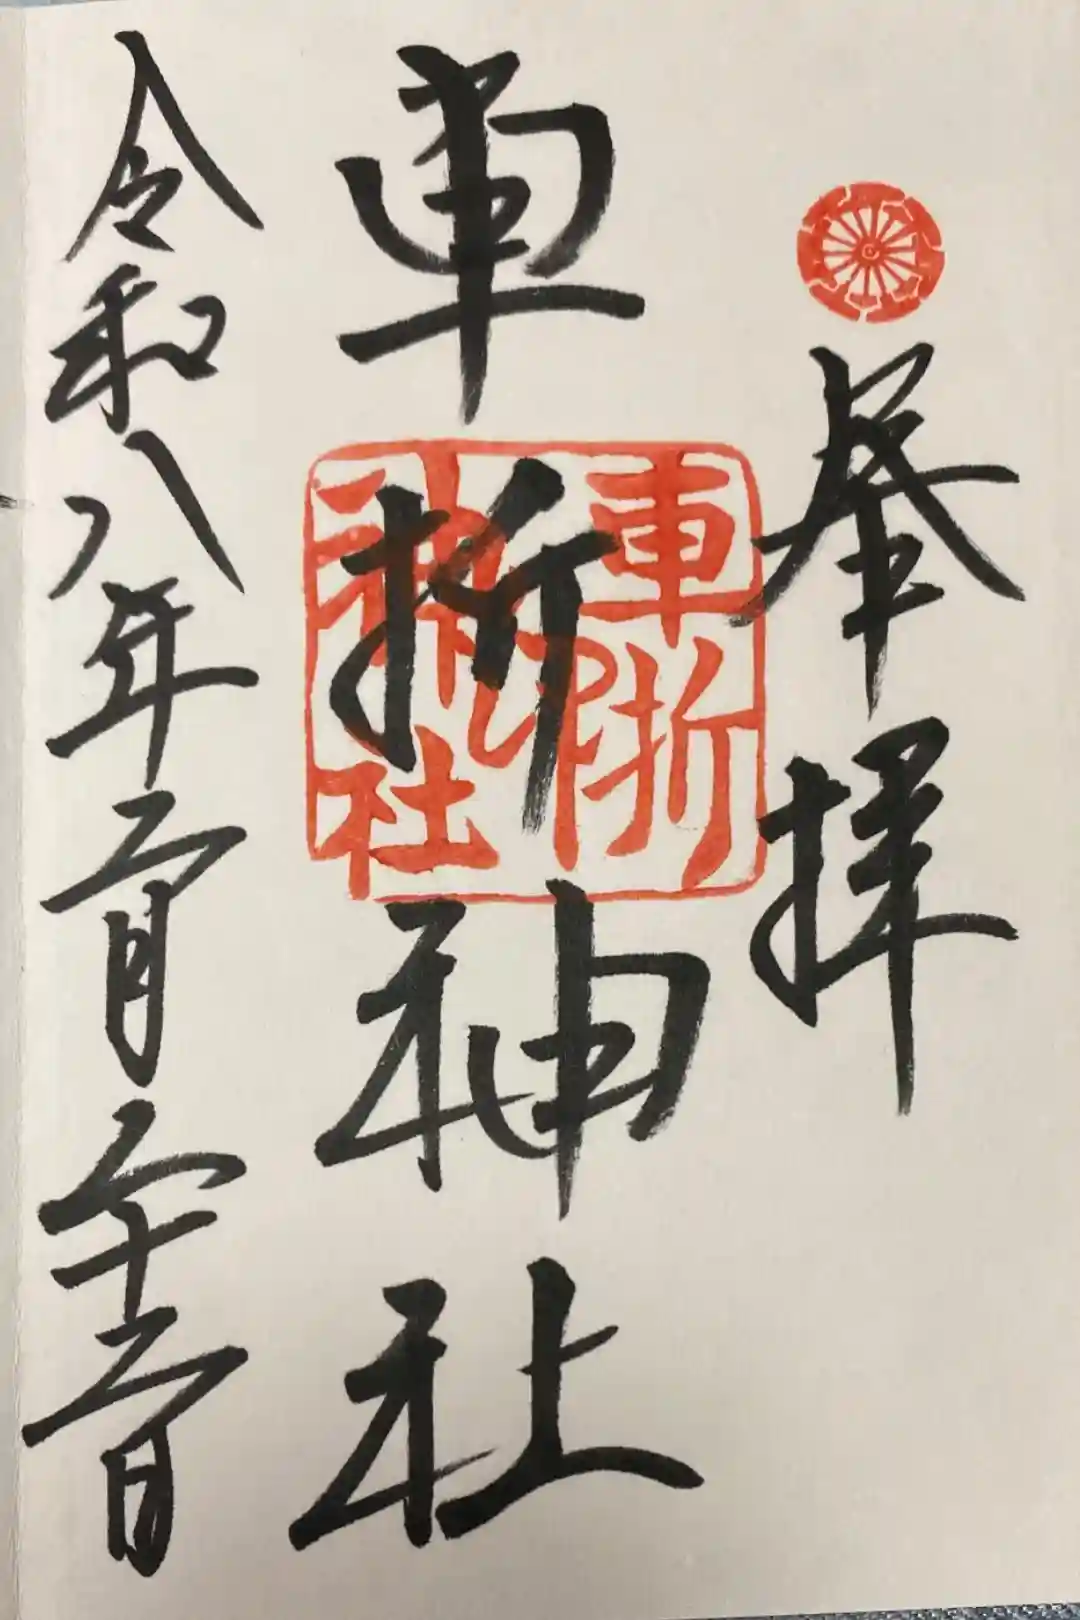 奉拝
車折神社
令和八年二月二十二日
車折
神社